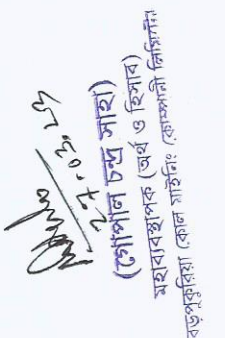 ২৭.০৩.১৭
(গোপাল চন্দ্র সাহা)
মহাব্যবস্থাপক (অর্থ ও হিসাব)
বড়পুকুরিয়া কোল মাইনিং কোম্পানী লিমিটেড